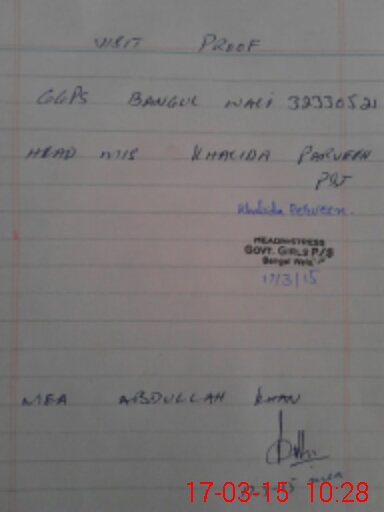 VISIT PROOF
GGPS BANGUL WALI 32330521
HEAD MIS KHALIDA PARVEEN
PST
Khalida Perveen.
HEADMISTRESS
GOVT. GIRLS P/S
Bangul Wala
17/3/15
MEA ABDULLAH KHAN
17-03-15 10:28